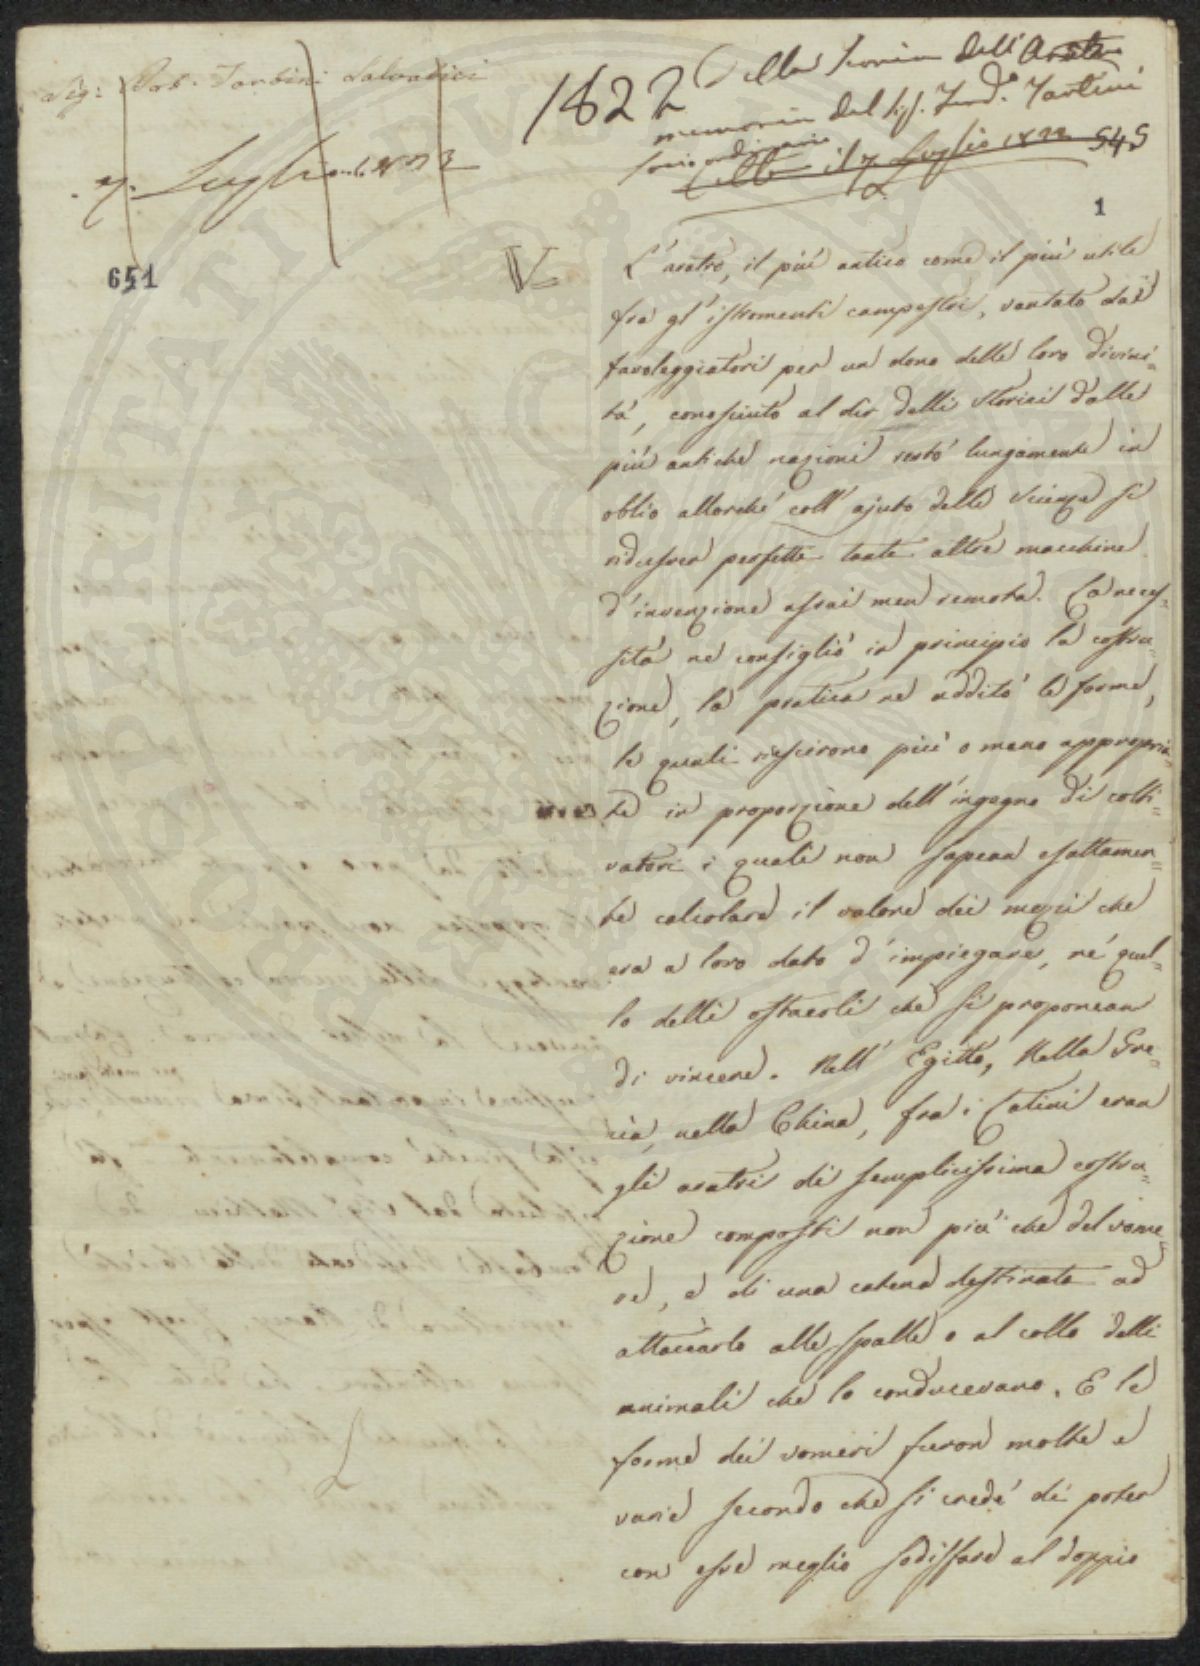 Sig: Dott. Tartini Salvatici
7. Luglio 1822
1822
Della Teoria dell'Aratro
memoria del Sig. Ferd.o Tartini
Socio ordinario
Letta il 7 Luglio 1822
545
1
651
V
L'aratro, il più antico come il più utile
fra gl'istromenti campestri, vantato dai
favoleggiatori per un dono delle loro divini=
tà, conosciuto al dir delli Storici dalle
più antiche nazioni restò lungamente in
oblio allorchè coll'ajuto delle Scienze si
ridusser perfette tante altre macchine
d'invenzione assai men remota. La neces=
sità ne consigliò in principio la costru=
zione, la pratica ne additò le forme,
le quali riescirono più o meno appropria=
te in proporzione dell'ingegno di colti=
vatori i quali non sapean esattamen=
te calcolare il valore dei mezzi che
era a loro dato d'impiegare, nè quel=
lo delli ostacoli che si proponean
di vincere. Nell'Egitto, Nella Gre=
cia, nella China, fra i Latini eran
gli aratri di semplicissima costru=
zione composti non più che del vome=
re, e di una catena destinata ad
attaccarlo alle spalle o al collo delli
animali che lo conducevano. E le
forme dei vomeri furon molte e
varie secondo che si credè di poter
con esse meglio sodisfare al doppio